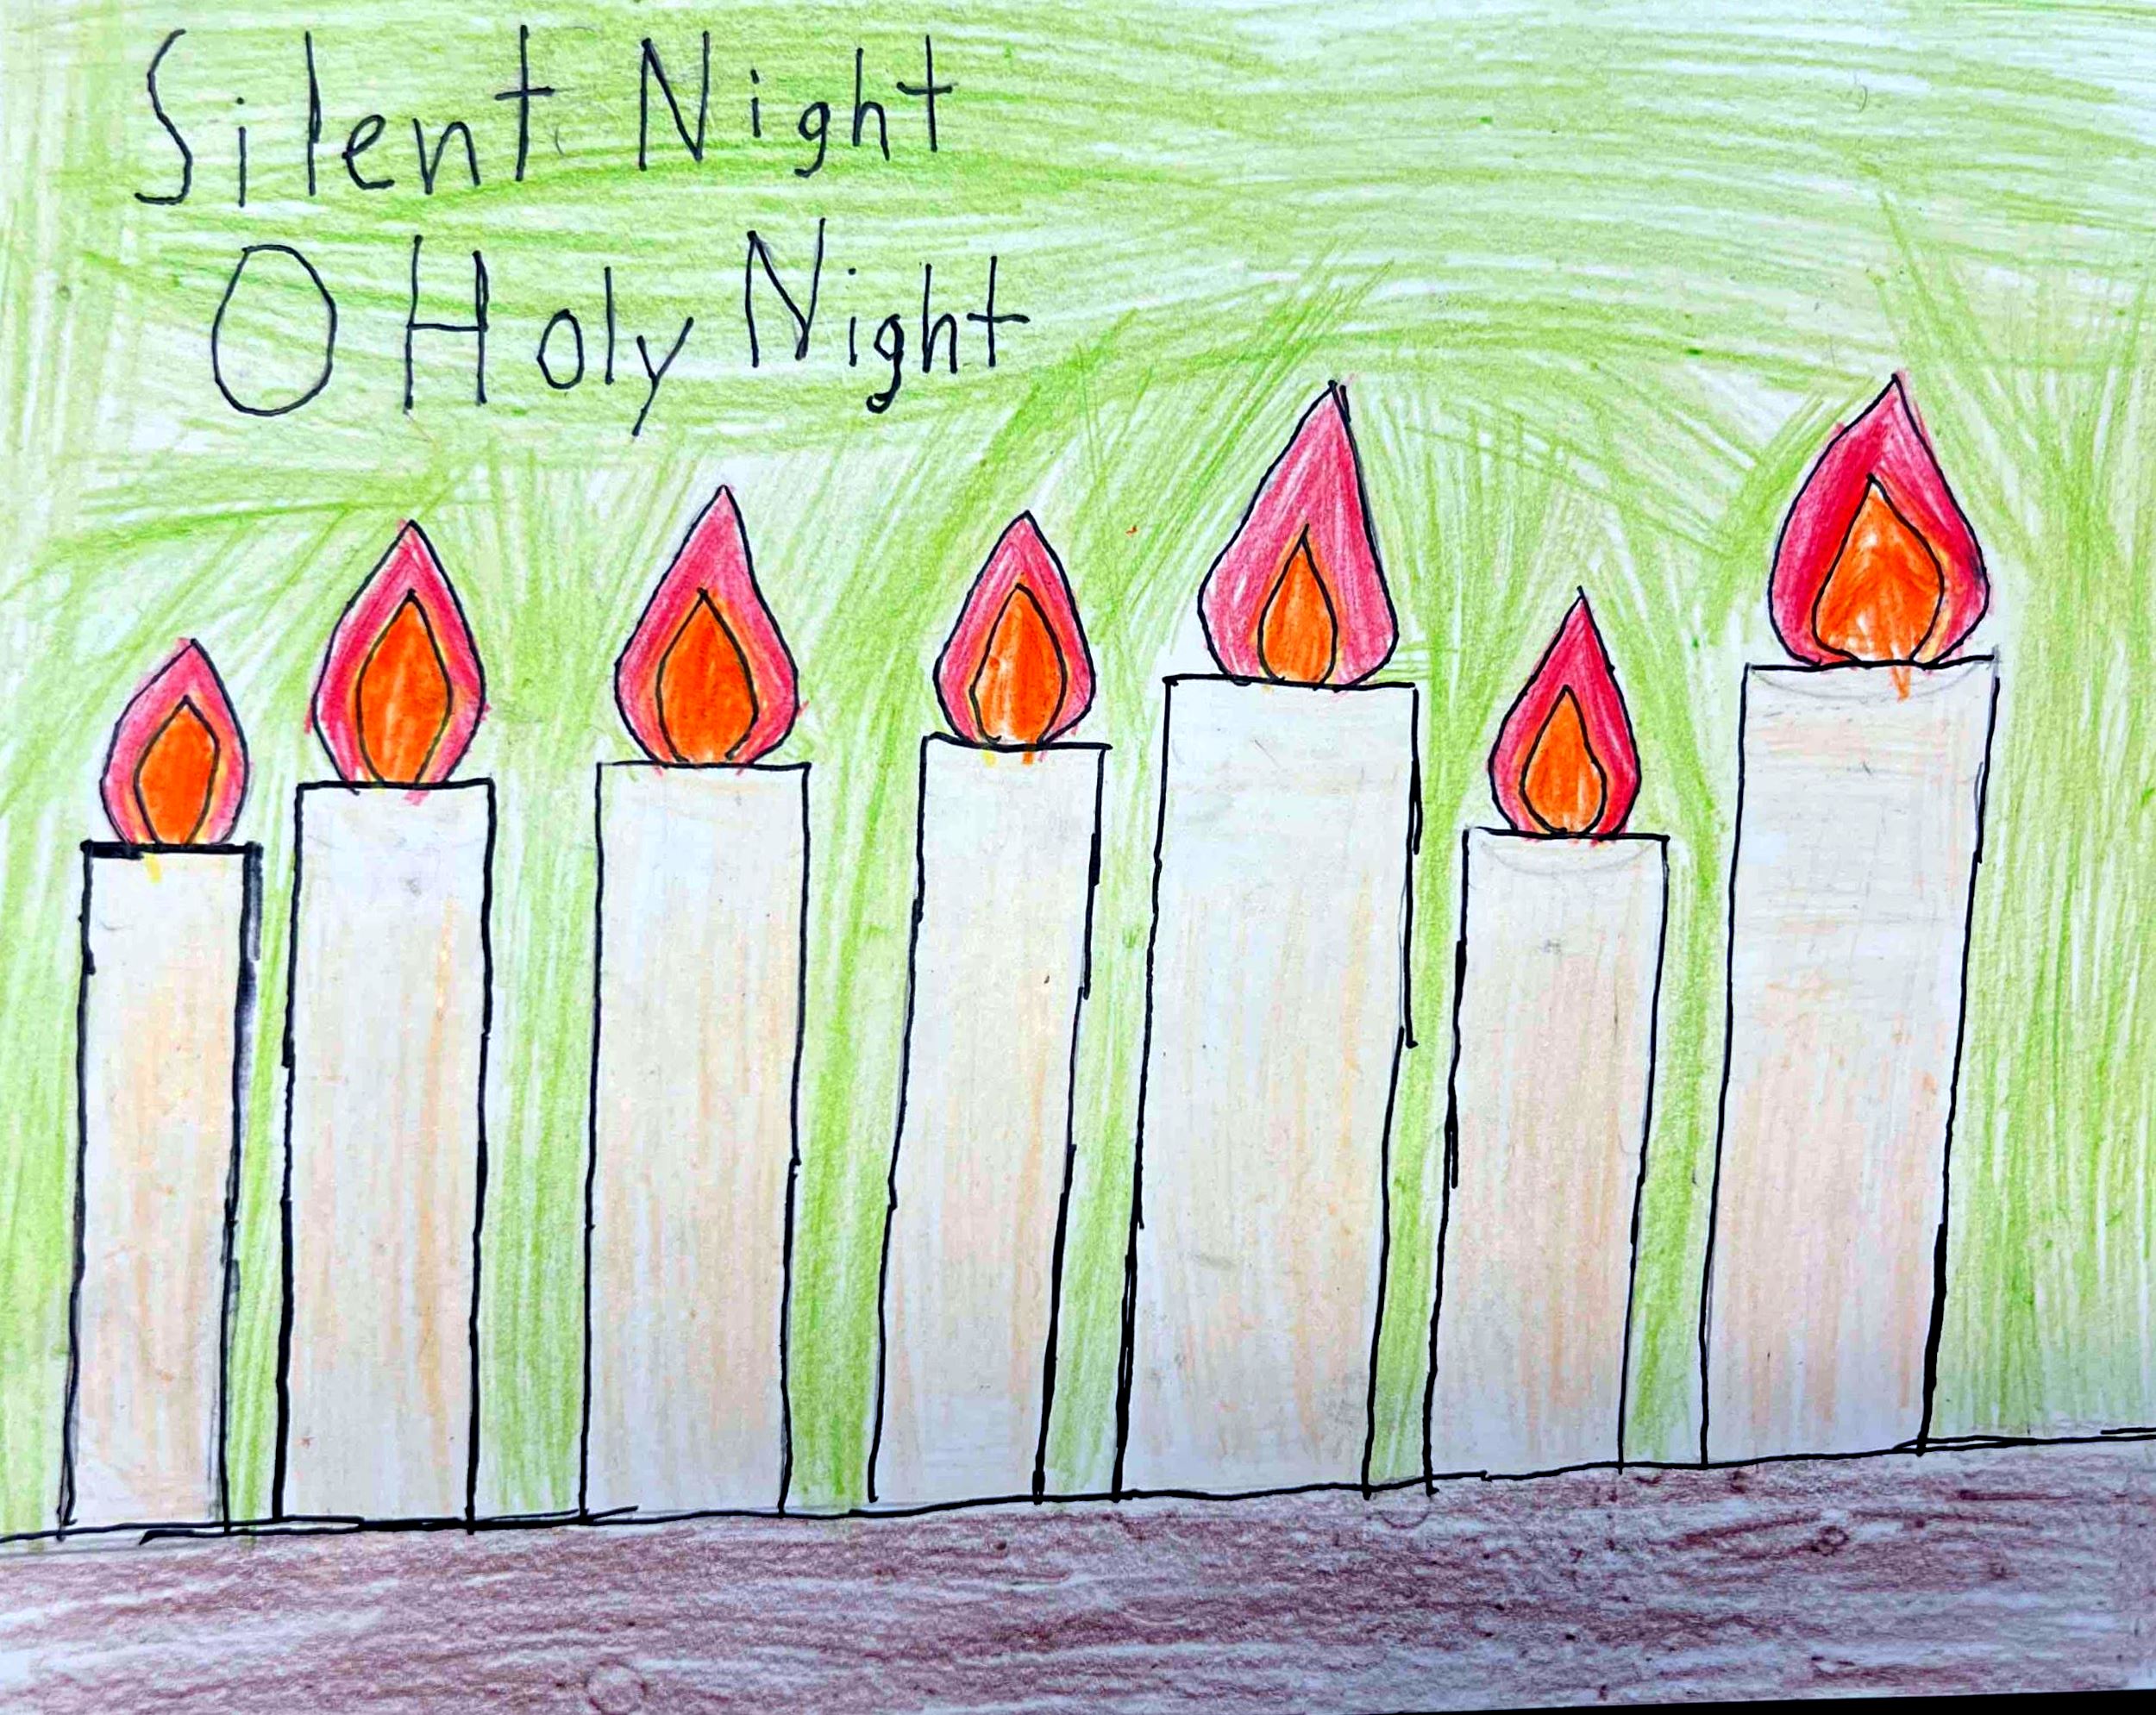 Silent Night
O Holy Night